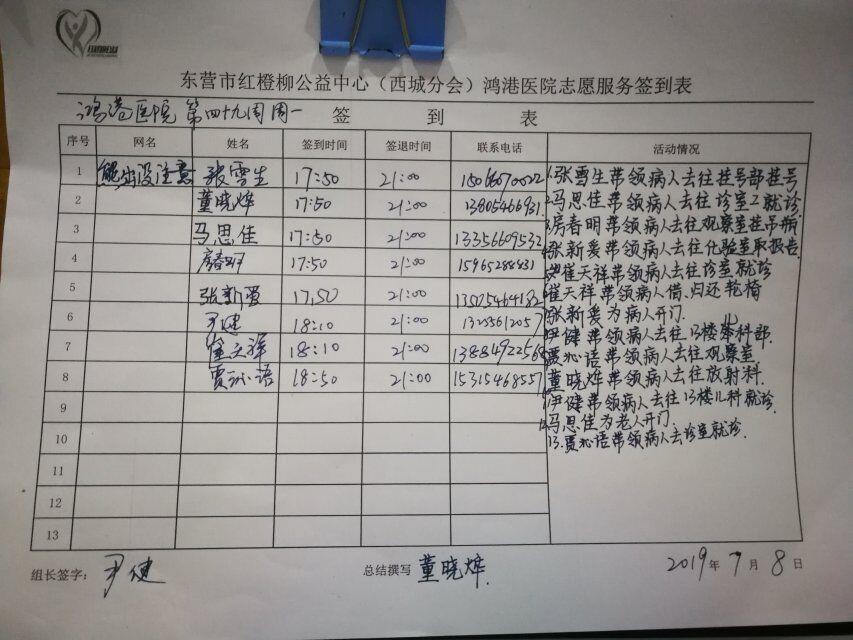 东营市红橙柳公益中心（西城分会）鸿港医院志愿服务签到表
鸿港医院 第四十九周周一 签到表
序号 网名 姓名 签到时间 签退时间 联系电话 活动情况
1 熊出没注意 张雪生 17:50 21:00
2 董晓烨 17:50 21:00
3 马思佳 17:50 21:00 13356609532
4 房春明 17:50 21:00 15965288831
5 张新爱 17:50 21:00 13575464182
6 尹健 18:10 21:00
7 崔天祥 18:10 21:00
8 贾沁语 18:50 21:00 15315468557
9
10
11
12
13
1.张雪生带领病人去往挂号部挂号
2.马思佳带领病人去往诊室2就诊
3.房春明带领病人去往观察室挂吊瓶
4.张新爱带领病人去往化验室取报告
崔天祥带领病人去往诊室就诊
崔天祥带领病人借、归还轮椅
张新爱为病人开门.
尹健带领病人去往13楼儿科部.
贾沁语带领病人去往观察室
董晓烨带领病人去往放射科.
尹健带领病人去往13楼儿科就诊.
马思佳为老人开门.
13.贾沁语带领病人去诊室就诊.
组长签字： 尹健 总结撰写 董晓烨. 2019年7月8日